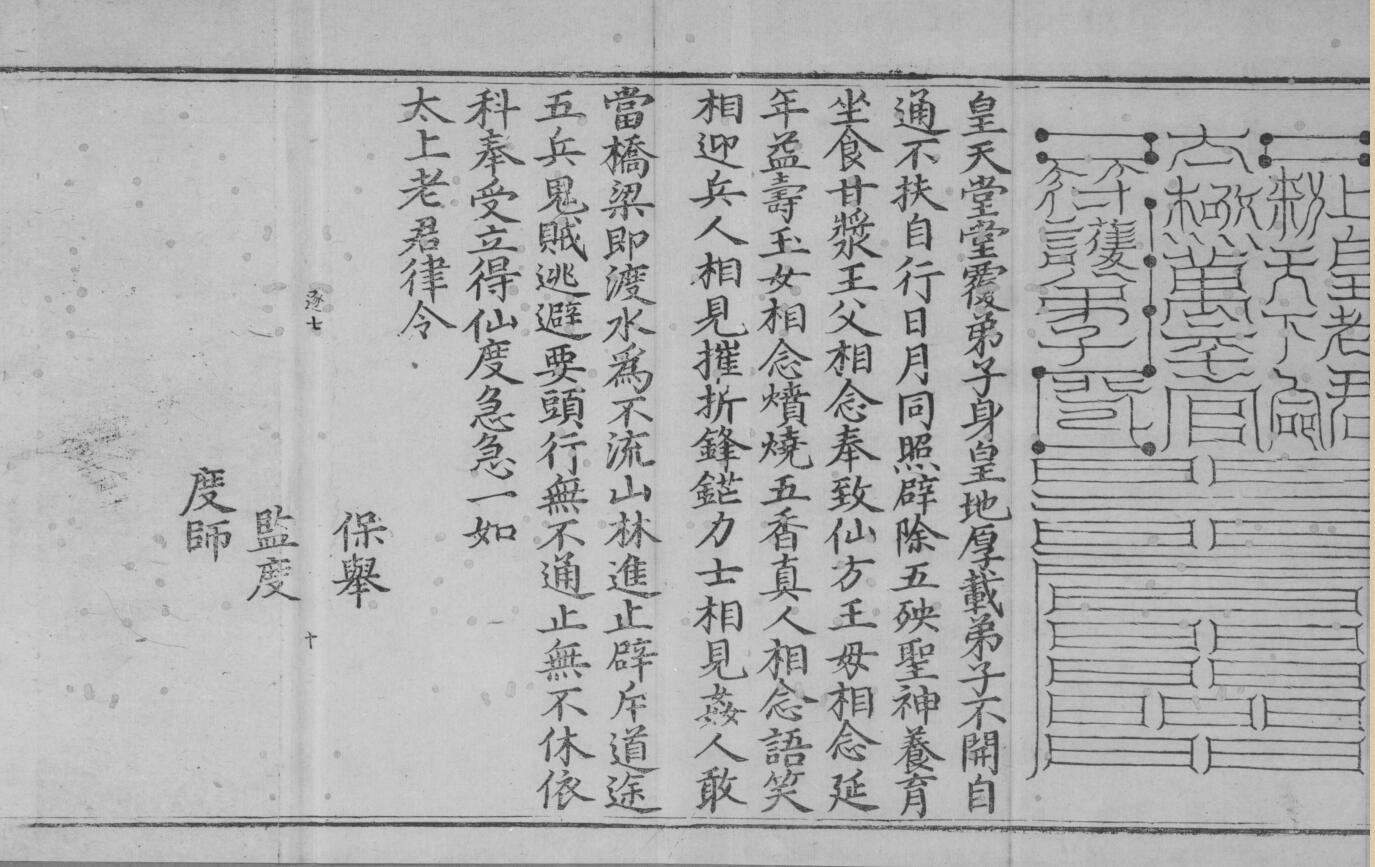 上皇老君
勑天下
太極
弟子
皇天堂堂覆弟子身皇地厚載弟子不開自
通不扶自行日月同照辟除五殃聖神養育
坐食甘漿王父相念奉致仙方王母相念延
年益壽玉女相念燌燒五香真人相念語笑
相迎兵人相見摧折鋒鋩力士相見姦人敢
當橋梁即渡水為不流山林進止辟斥道途
五兵鬼賊逃避要頭行無不通止無不休依
科奉受立得仙度急急一如
太上老君律令
逐七
十
保舉
監度
度師